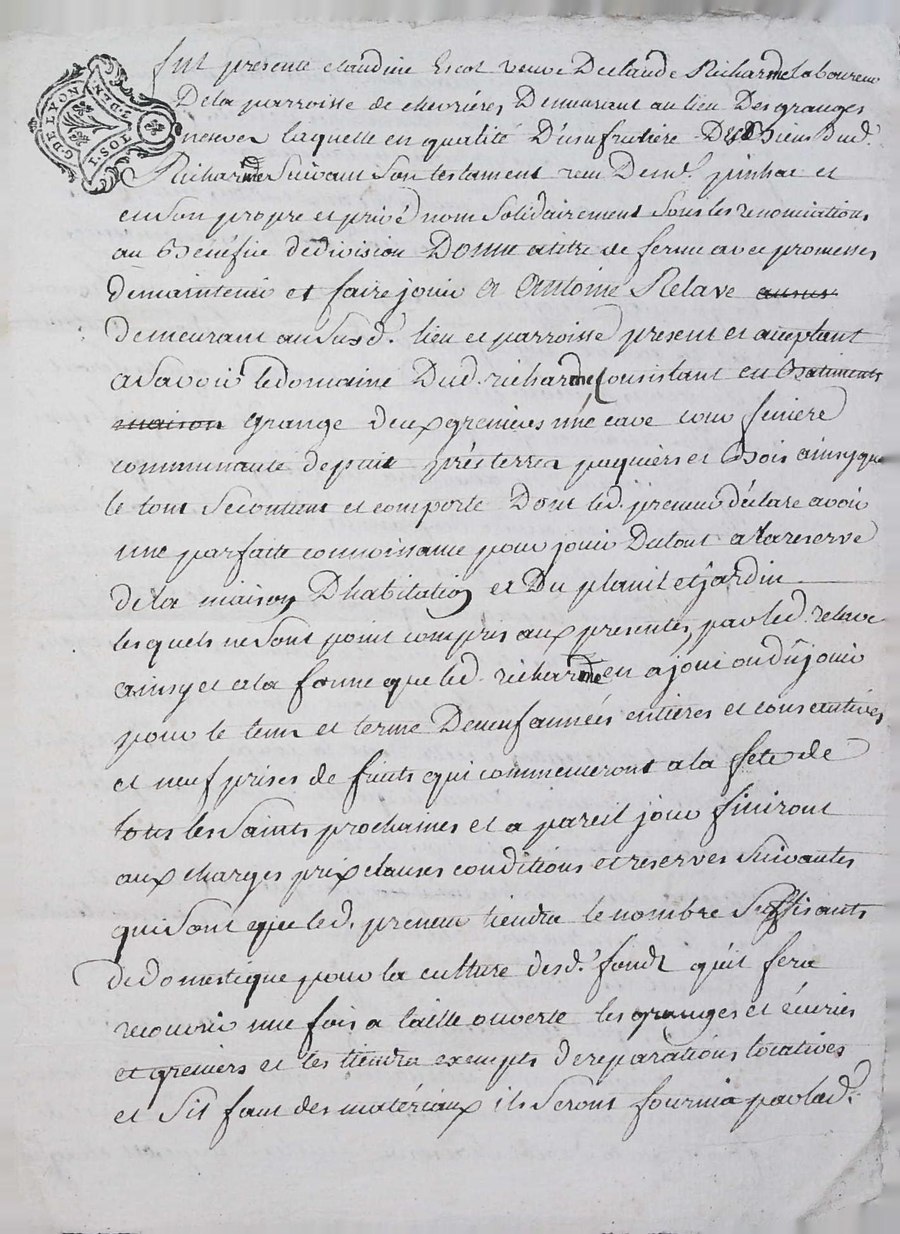 G. DE LYON
I. SOL
D. DEN.
fut presente claudine Escot veuve Declaude Richarme laboureur
De la parroisse de chevrieres Demeurant au lieu Des granges
neuves laquelle en qualité D'usufrutiere Des Biens Dud.
Richarme Suivant Son testament reçu De me. pinhac et
en Son propre et privé nom Solidairement Sous les renonciations
au Benéfice de division Donne a titre de ferme avec promesses
de maintenir et faire jouir a Antoine Relave
demeurant au Susd. lieu et parroisse present et acceptant
a Savoir le domaine Dud. richarme Consistant en Batiments
maison grange deux greniers une cave cour feniere
communauté de puit prés terres paquiers et Bois ainsy que
le tout Se contient et comporte Dont led. preneur déclare avoir
une parfaite connoissance pour jouir Du tout a la reserve
De la maison D'habitation et Du et jardin
lesquels ne Sont point compris aux presentes par led. relave
ainsy et a la forme que led. richarme en a joui ou dû jouir
pour le tems et terme De neuf années entières et consecutives
et neuf prises de fruits qui commenceront a la fete de
tous les Saints prochaines et a pareil jour finiront
aux charges prix clauses conditions et reserves Suivantes
qui Sont que led. preneur tiendra le nombre Suffisants
de domestique pour la culture desd. fonds qu'il fera
recouvrir une fois a taille ouverte les granges et écuries
et greniers et les tiendra exempts de reparations locatives
et S'il faut des matériaux ils Seront fournis par lad.